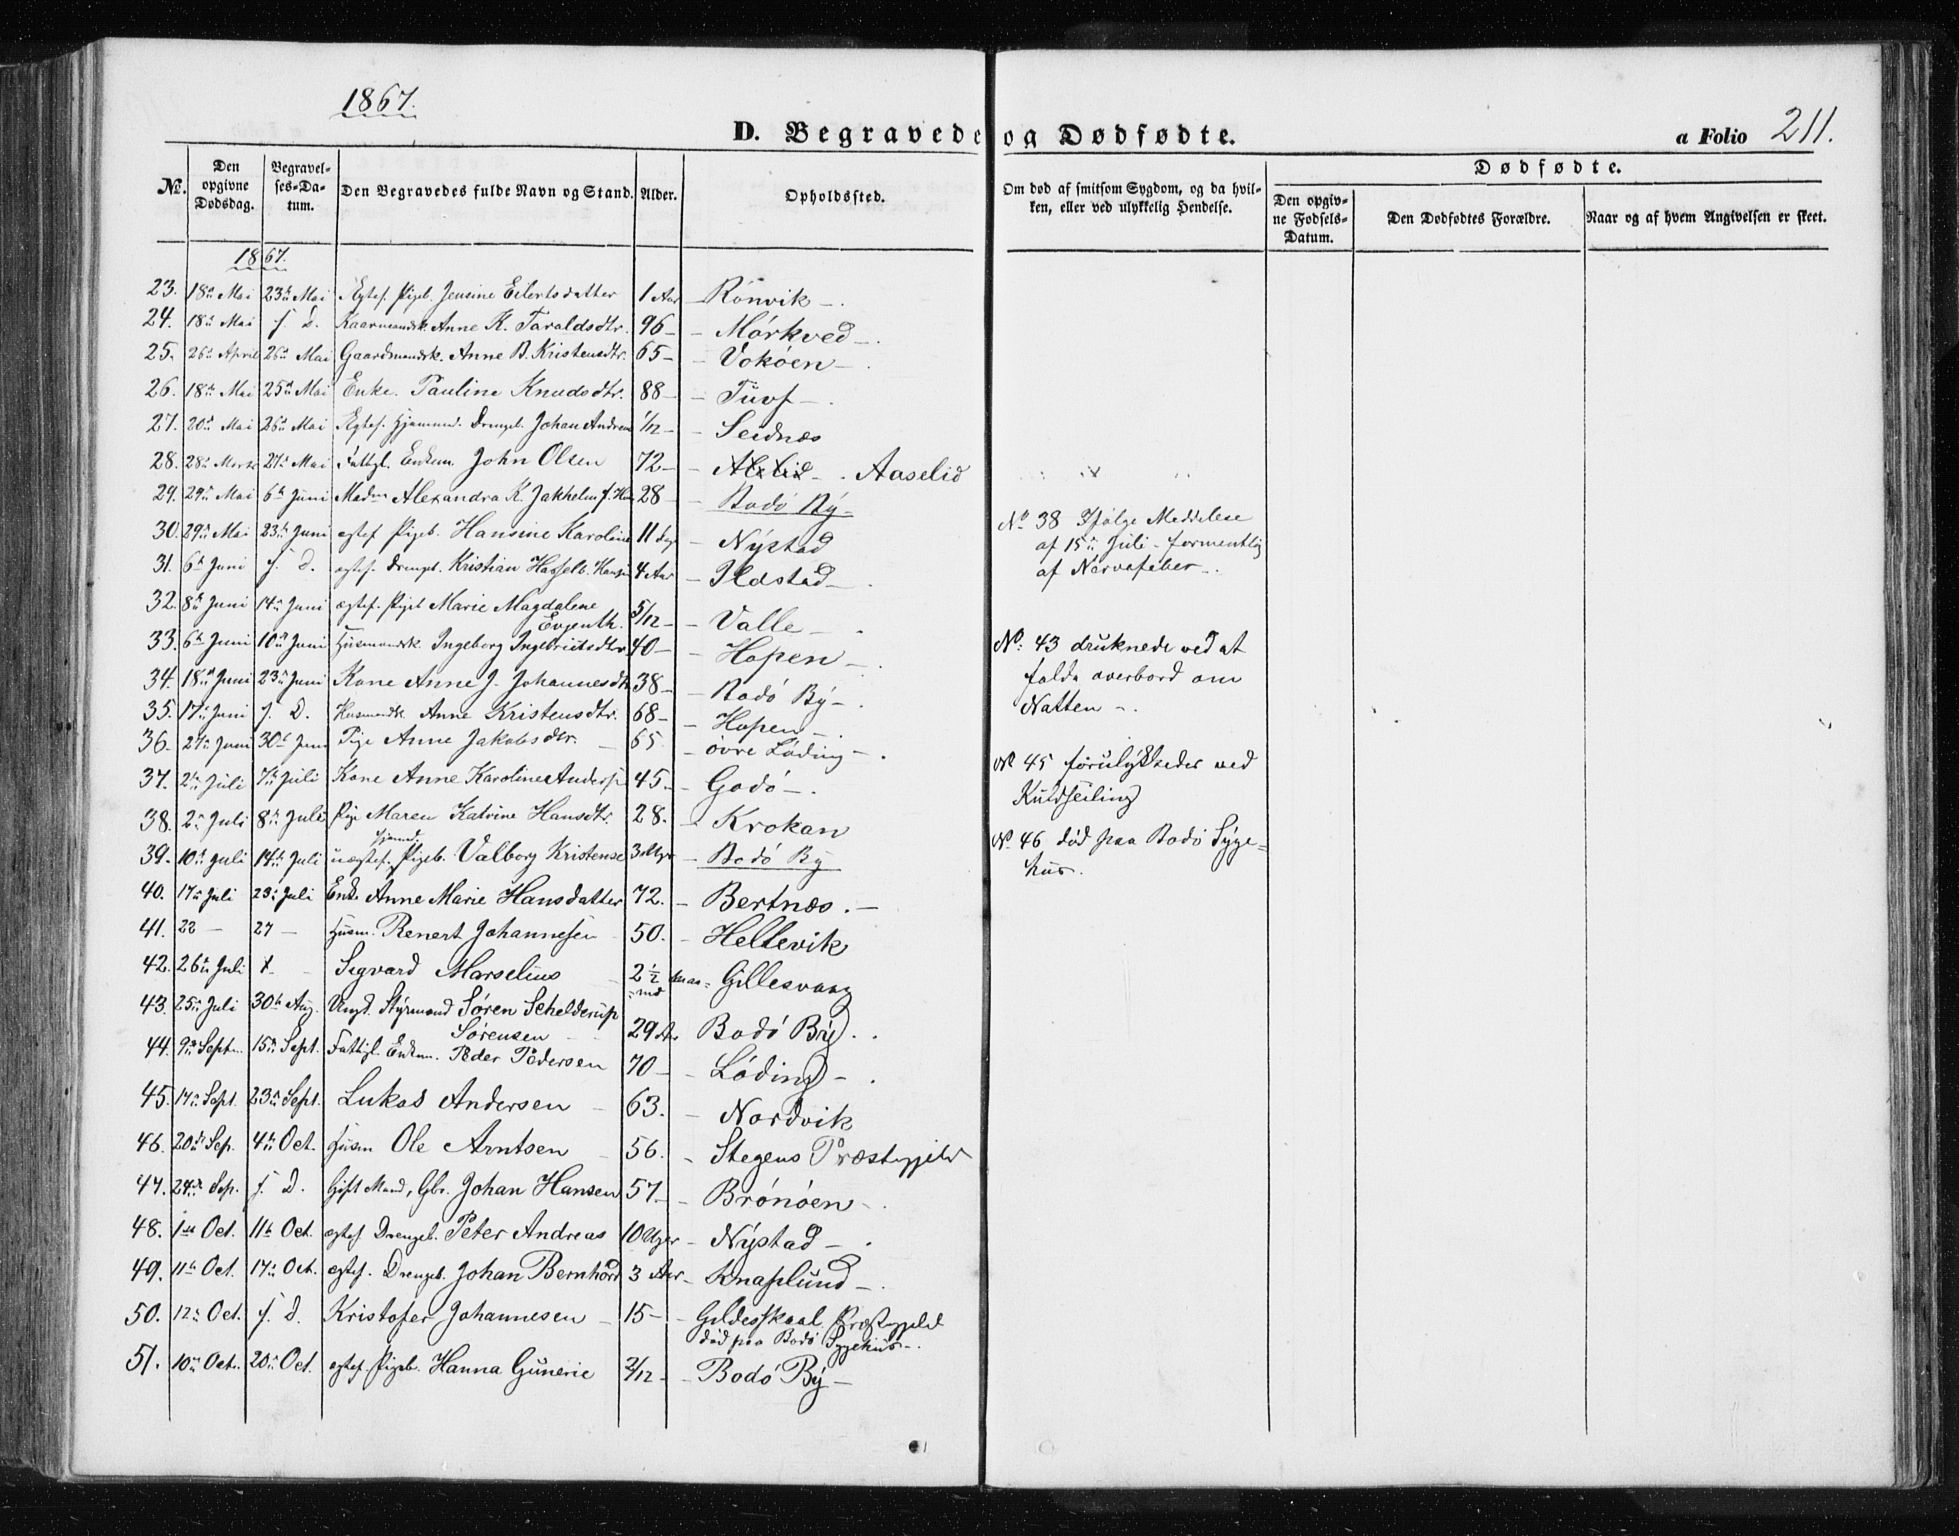 1867.
D. Begravede og Dødfødte.
a Folio 211.
№.
Den opgivne Dødsdag.
Begravel-ses-Da-tum.
Den Begravedes fulde Navn og Stand.
Alder.
Opholdssted.
Om død af smitsom Sygdom, og da hvil-ken, eller ved ulykkelig Hendelse.
Dødfødte.
Den opgiv-ne Fødsels-Datum.
Den Dødfødtes Forældre.
Naar og af hvem Angivelsen er skeet.
1867.
23. 18de Mai 23de Mai Ægtef. Pigeb. Jensine Eilertsdatter 1 Aar - Rönvik -.
24. 18de Mai s. D. Kaarmandsk. Anne K. Taraldsdtr. 96 - - Mörkved -.
25. 26de April 26de Mai Gaardmandsk. Anne B. Kristensdtr. 65 - - Voköen -.
26. 18de Mai 25de Mai Enke. Pauline Knudsdtr. 88 - - Tuvf -.
27. 20de Mai 26de Mai Ægtef. Hjemmed. Drengeb. Johan Andreas 1/12 - - Seidnæs
28. 28de Marts 27de Mai Fattigl. Enkem. John Olsen 72 - - Aaselid
29. 29de Mai 6te Juni Madm Alexandra K. Jakhelln f. 28 - Bodö By -
30. 29de Mai 23de Juni egtef Pigeb. Hansine Karoline 11 dage - Nÿstad
31. 6te Juni s. D. ægtef. Drengeb. Kristian Hasselb. Hansen 4 Aar - Ildstad -.
32. 8de Juni 14de Juni ægtef. Pigeb Marie Magdalene Evjenth. 5/12 - - Valle -.
33. 6te Juni 10de Juni Husmandsk. Ingeborg Ingebrittsdtr 40 - - Hopen -.
34. 18de Juni 23de Juni Kone Anne J. Johannesdtr 38 - - Bodö Bÿ -.
35. 17de Juni s. D. Husmandsk. Anne Kristensdtr. 68 - - Hopen -.
36. 27de Juni 30te Juni Pige Anne Jakobsdtr. - 65 - övre Löding -.
37. 2de Juli 7de Juli Kone Anne Karoline Andersd 45 - - Godö -.
38. 2de Juli 8de Juli Pige Maren Katrine Hansdtr. 28. - Krokan
39. 10de Juli 14de Juli uægtef. hjemd. Pigeb. Valborg Kristense 3 Uger - Bodö By
40. 17de Juli 23de Juli Enke Anne Marie Hansdatter 72. - Bertnæs. -
41. 22 - 27 - Husm. Renert Johannesen 50. - Hellevik
42. 26de Juli Sigvard Marselius - 2 1/2 Gillesvaag
43. 25de Juli 30te Aug. Ungk. Styrmand Sören Schelderup Sörensen 29 Aar Bodö Bÿ.
44. 9de Sept. 15de Sept. Fattigl. Enkem. Peder Pedersen 70 - - Löding -.
45. 17de Sept. 23de Sept. Lukas Andersen - 63. - Nordvik
46. 20de Sep. 4de Oct. Husm Ole Arntsen - 56. - Stegens Præstegjeld
47. 24de Sep. s. D. Gift Mand, Gbr. Johan Hansen 57. - Brönöen -.
48. 1ste Oct. 11te Oct. ægtef Drengeb. Peter Andreas 10 Uger - Nÿstad -.
49. 11te Oct. 17de Oct. ægtef. Drengeb. Johan Bernhard 3 Aar - Knaplund -.
50. 12te Oct. s. D. Kristofer Johannesen - 15 - - Gildesskaal Præstegjeld
död paa Bodö Sygehus -.
51. 10de Oct. 20de Oct. egtef. Pigeb. Hanna Gunerie 2/12 - - Bodö Bÿ -
No 38 Ifölge Meddelelse
af 15de Juli - formentlig
af Nervefeber -.
No: 43 druknede ved at
falde overbord om
Natten -.
No 45 forulykkedes ved
Kuldseiling
No. 46 död paa Bodö Syge=
hus.